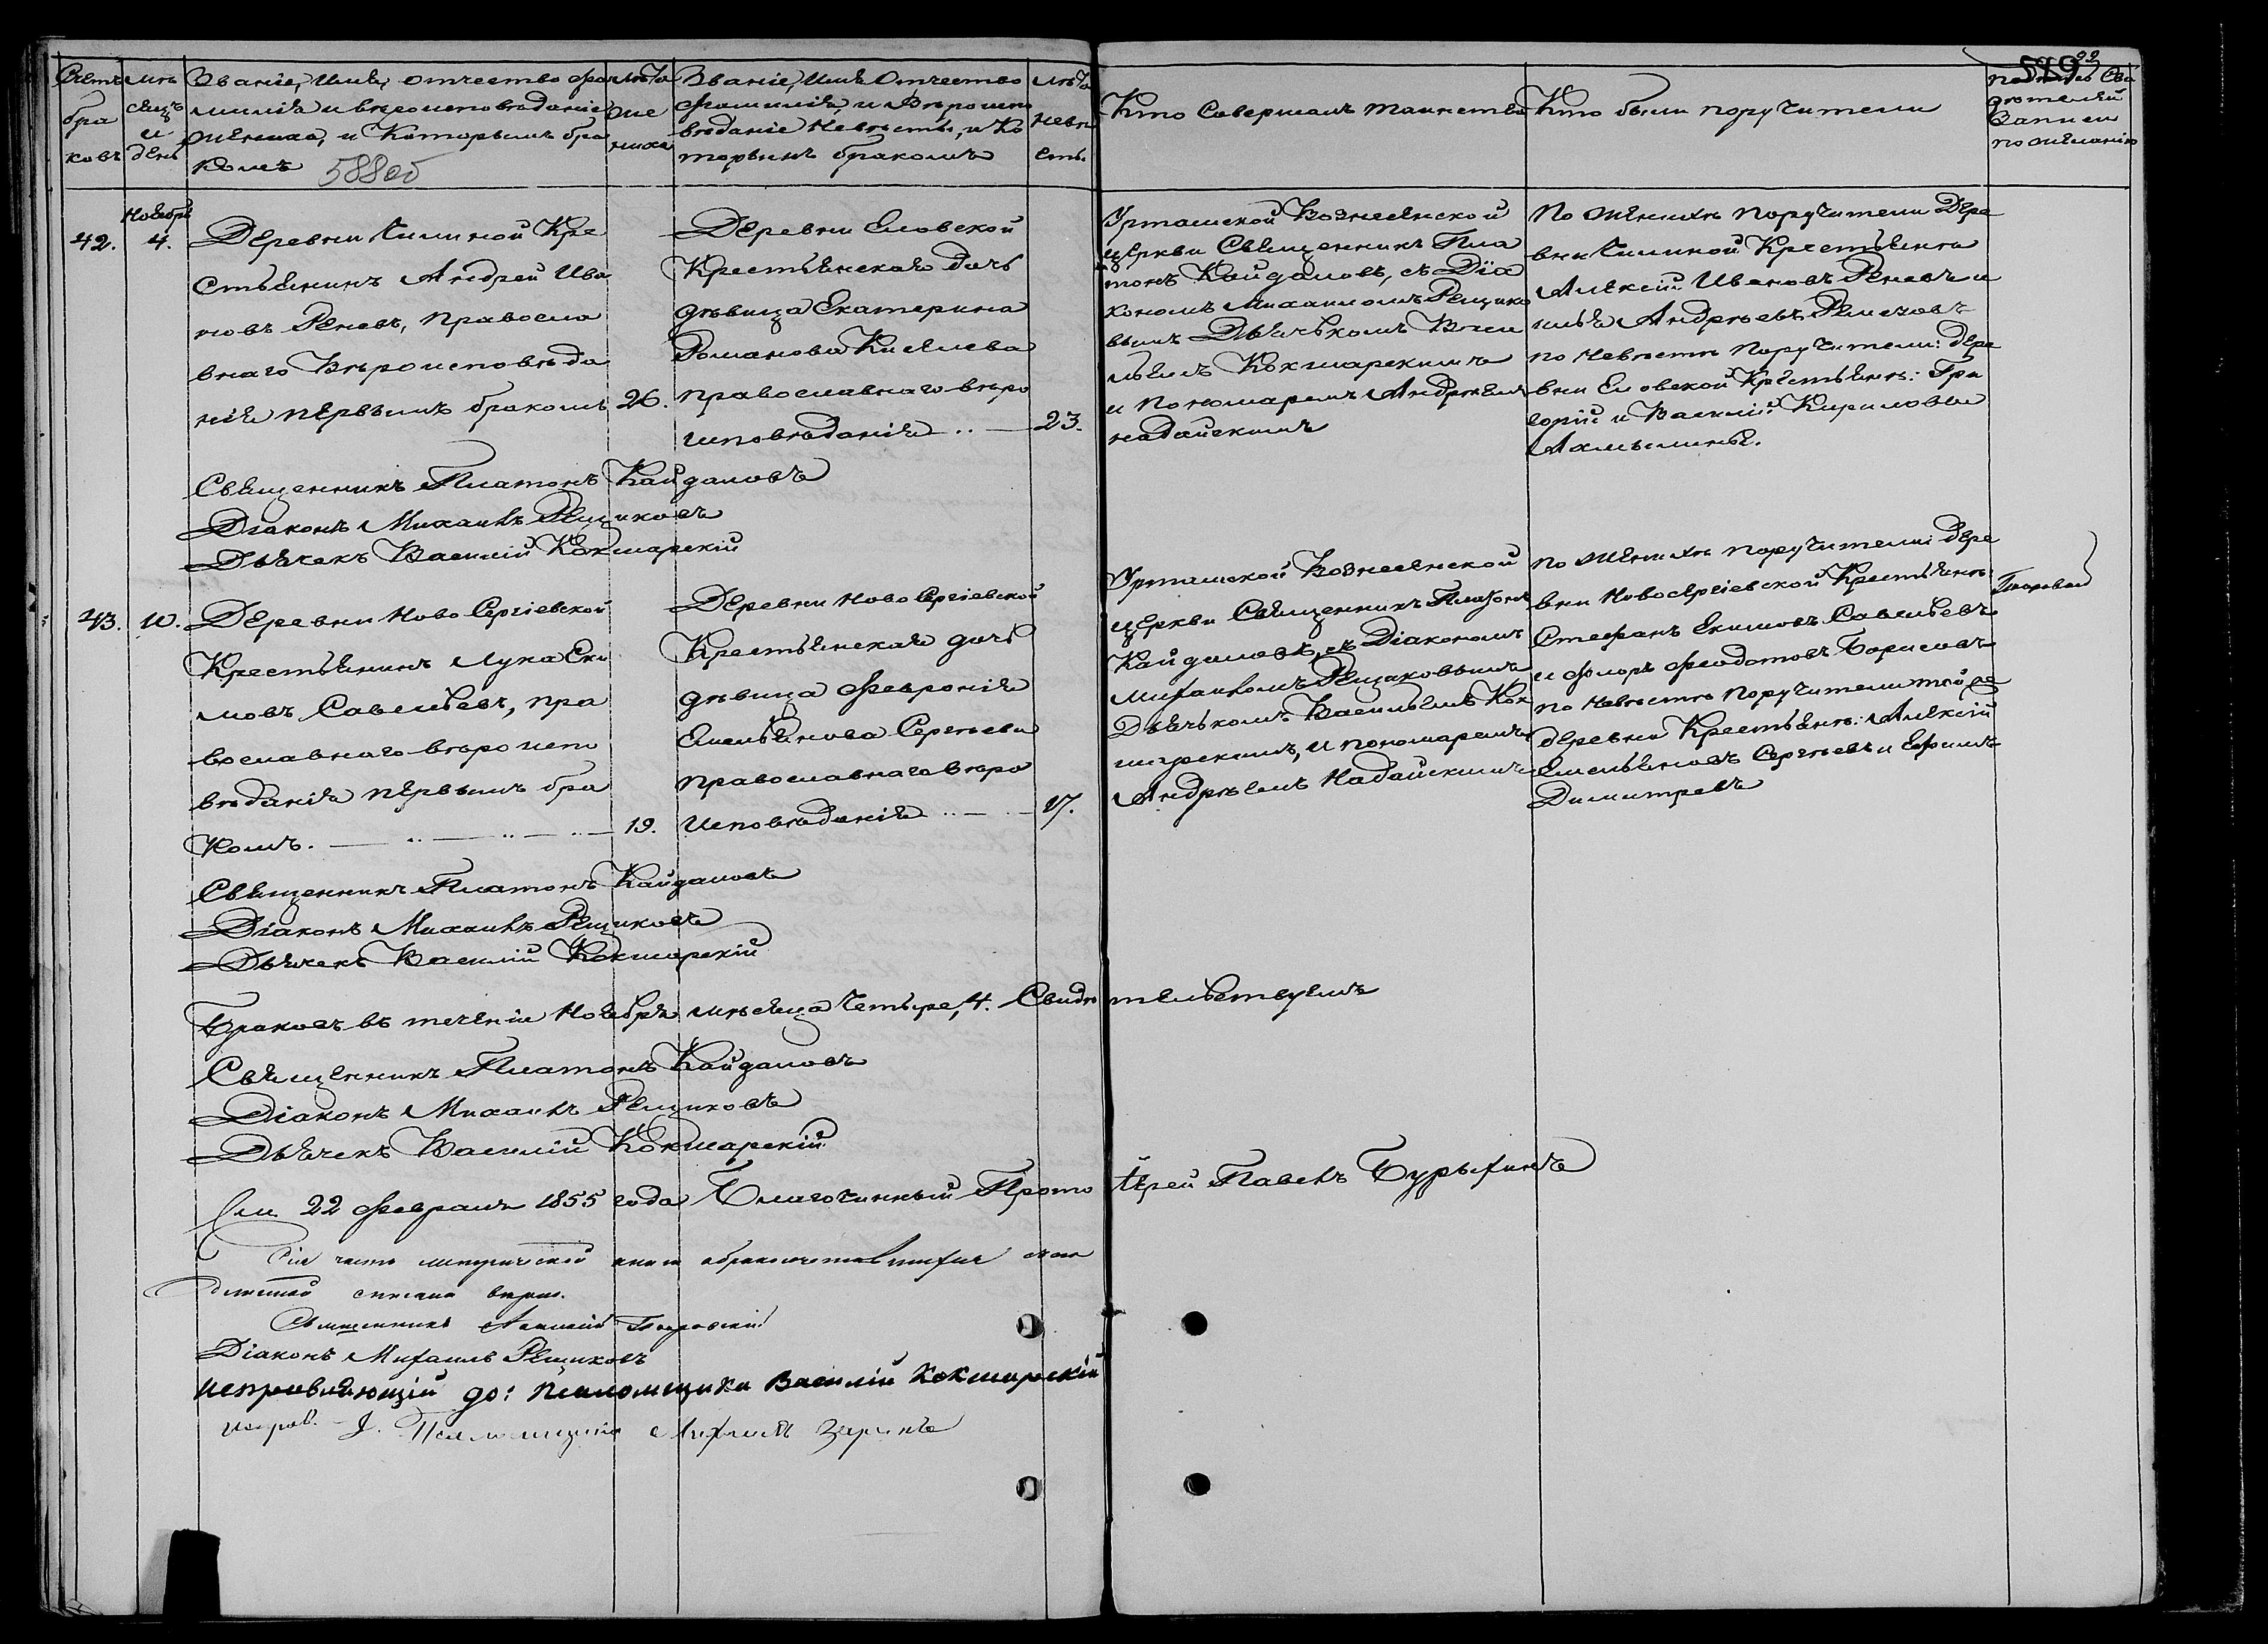 Счетъ браковъ
Мѣсяцъ и день
Званіе, Имя, отчество фа
милія и вѣроисповѣданіе
жениха, и Которымъ бра
комъ
58 об
Лѣта жениха
Званіе, Имя Отчество
фамилія и Вѣроиспо
вѣданіе Невѣсты, и Ко
торымъ бракомъ
Лѣта невѣсты
Кто Совершалъ таинство
Кто были поручители
529
подпись Сви
дѣтелей
Записи
по желанію
42.
Ноября
4.
Деревни Кре
стьянинъ Андрей Ива
новъ Реневъ, Правосла
внаго Вѣроисповѣда
нія первымъ бракомъ
26.
Деревни Еловской
Крестьянская дочь
дѣвица Екатерина
Романова Киселева
православнаго вѣро
исповѣданія
23.
Урташской Вознесенской
церкви Священникъ Пла
тонъ Кайдаловъ, съ Діа
кономъ Михаиломъ Рещико
вымъ Дьячькомъ Васи
льемъ Кокшарскимъ
и Пономаремъ Андреемъ
Надайскимъ
По женихѣ Поручители Дере
вни Крестьяна
Алексій Ивановъ Реневъ и
Илья Андреевъ
по Невѣстѣ Поручители: дере
вни Еловской Крестьяна: Гри
горій и Василій Кириловы
Священникъ Платонъ Кайдаловъ
Діаконъ Михаилъ Рещиковъ
Дьячекъ Василій Кокшарскій
43.
10.
Деревни Ново Сергіевской
Крестьянинъ Лука Еки
мовъ Савельевъ, пра
вославнаго вѣроиспо
вѣданія первымъ бра
комъ.
19.
Деревни Ново Сергіевской
Крестьянская дочь
дѣвица Февронія
Емельянова Сергѣева
Православнаго вѣро
исповѣданія
17.
Урташской Вознесенской
церкви Священникъ Платонъ
Кайдаловъ, съ Діакономъ
Михаиломъ Рещиковымъ
Дьячькомъ Васильемъ Кок
шарскимъ, и пономаремъ
Андреемъ Надайскимъ
по женихѣ поручители: дере
вни Новосергіевской Крестьяна:
Стефанъ Екимовъ Савельевъ
и Флоръ Феодотовъ Борисовъ
по Невѣстѣ Поручители той же
деревни Крестьяна: Алексій
Емельяновъ Сергѣевъ и Ефимъ
Димитревъ
Священникъ Платонъ Кайдаловъ
Діаконъ Михаилъ Рещиковъ
Дьячекъ Василій Кокшарскій
Браковъ въ теченіи Ноября мѣсяца Четыре, 4. Свидѣтельствуемъ
Священникъ Платонъ Кайдаловъ
Діаконъ Михаилъ Рещиковъ
Дьячекъ Василій Кокшарскій
22 февраля 1855 года Благочинный Прото іерей Павелъ Бурыхинъ
Сія часть метрической книги
списана вѣрно.
Священникъ
Діаконъ Михаилъ Рещиковъ
Исправляющій до: Псаломщика Василій Кокшарскій
Исправ. Д. Псаломщика